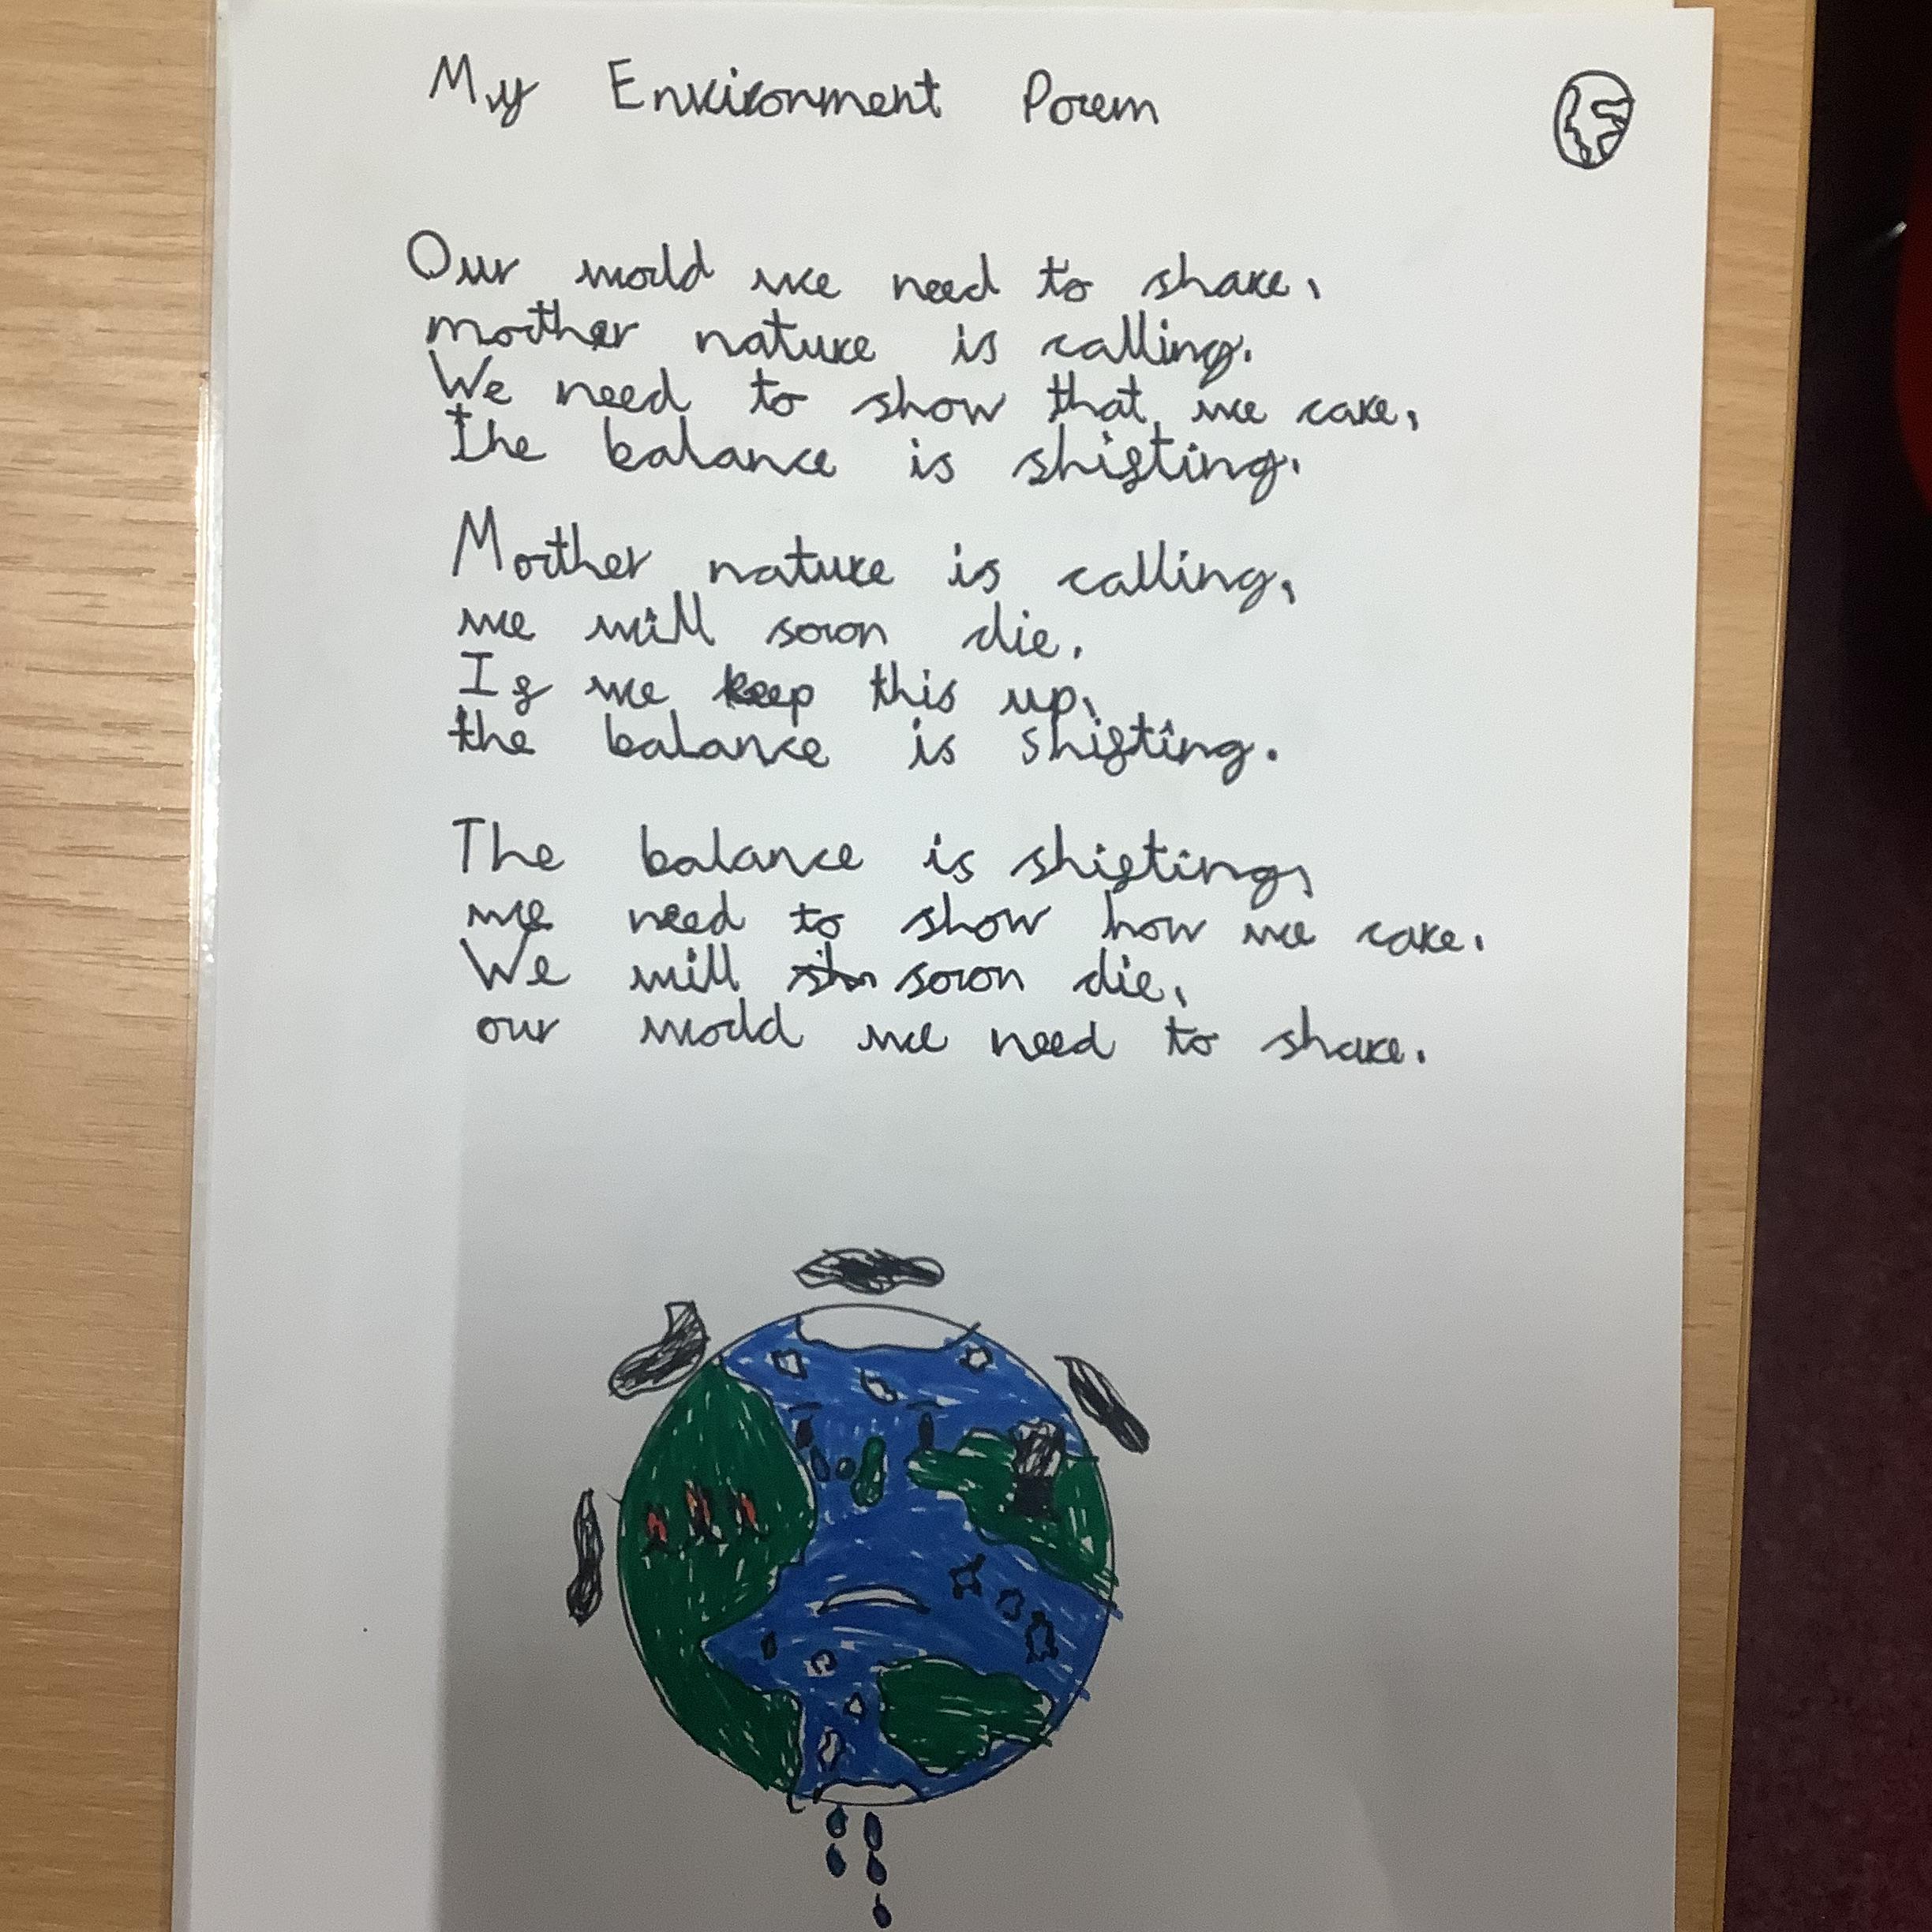 My Environment Poem
Our world we need to share,
mother nature is calling.
We need to show that we care,
the balance is shifting.
Mother nature is calling,
we will soon die.
If we keep this up,
the balance is shifting.
The balance is shifting,
we need to show how we care.
We will soon die,
our world we need to share.